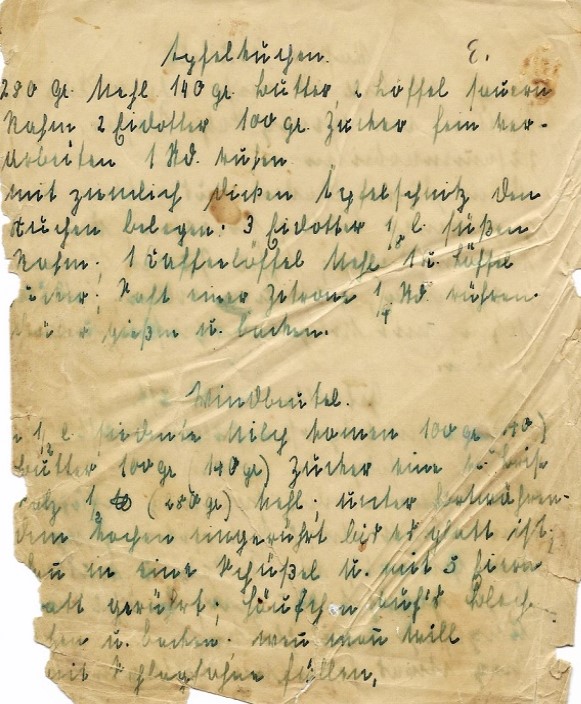 Apfelkuchen. E.
280 gr. Mehl 140 gr. Butter, 2 Löffel sauern
Rahm 2 Eidotter 100 gr. Zucker fein ver-
arbeiten 1 Std. ruhen.
mit ziemlich dicken Apfelschnitz den
Kuchen belegen: 3 Eidotter 1/8 l. süßen
Rahm, 1 Kaffeelöffel Mehl 1 u. Löffel
Saft einer Zitrone 1/4 Std. rühren.
gießen u. backen.
Windbeutel.
1/2 l. siedente Milch komen 100 gr
Butter 100 gr (140 gr) Zucker eine
1 (280 gr) Mehl; unter fortwähren-
dem Kochen eingerührt bis es glatt ist;
in eine Schüßel u. mit 5 Eiern
gerührt; Häufchen auf's Blech
u. backen. wen man will
mit Schlagsahne füllen,